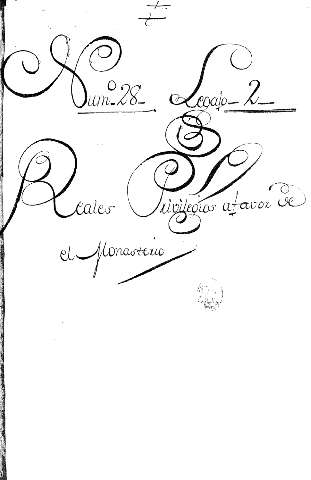 Num.º 28_ Legajo_ 2_
B
Reales Privilegios a favor de
el Monasterio